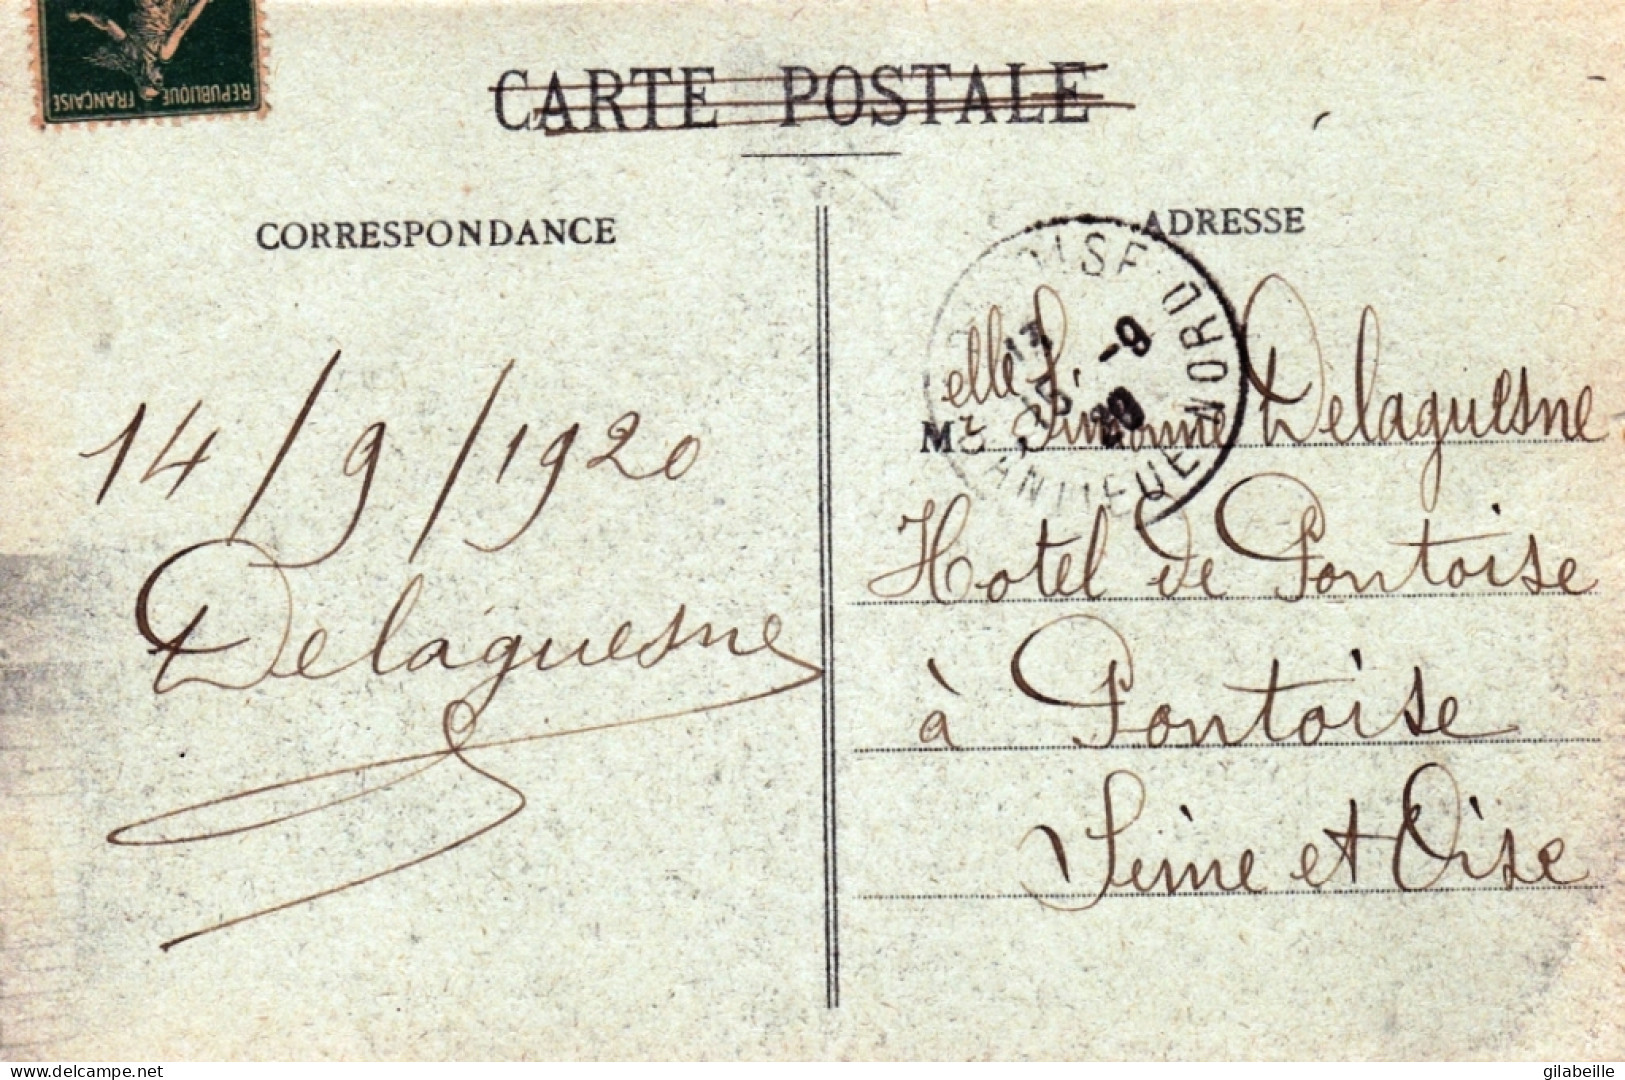 REPUBLIQUE FRANÇAISE
CARTE POSTALE
CORRESPONDANCE
ADRESSE
14/9/1920
Delaguesne
Melle S. Simonne Delaguesne
Hotel de Pontoise
à Pontoise
Seine et Oise
OISE NORD
15 -9
20
delcampe.net
gilabeille